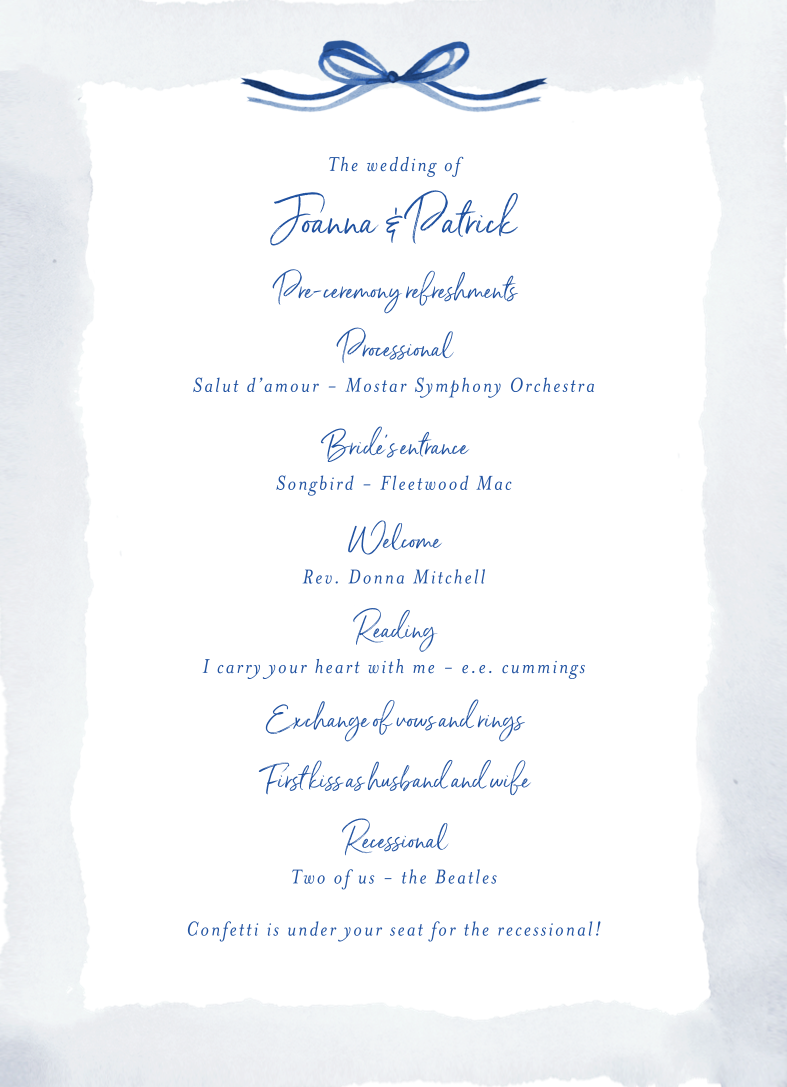 The wedding of
Joanna & Patrick
Pre-ceremony refreshments
Processional
Salut d’amour – Mostar Symphony Orchestra
Bride's entrance
Songbird – Fleetwood Mac
Welcome
Rev. Donna Mitchell
Reading
I carry your heart with me – e.e. cummings
Exchange of vows and rings
First kiss as husband and wife
Recessional
Two of us – the Beatles
Confetti is under your seat for the recessional!